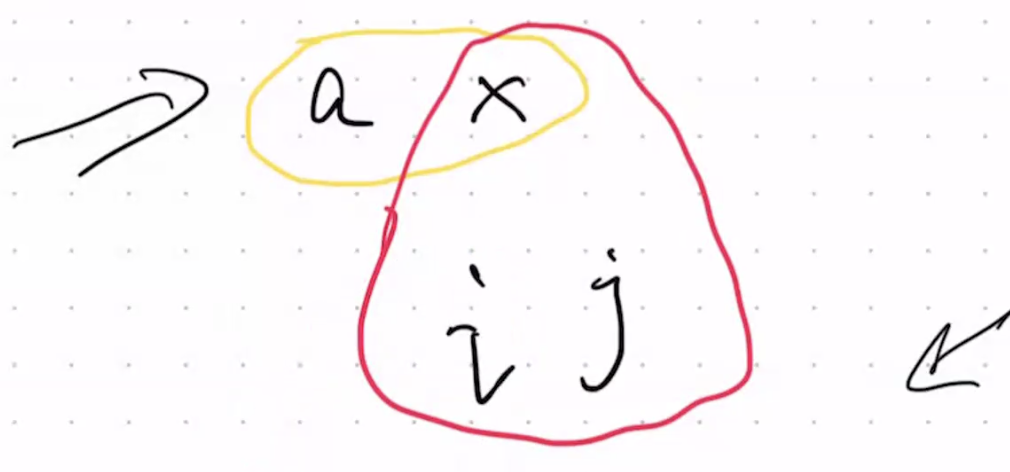 a x
i j